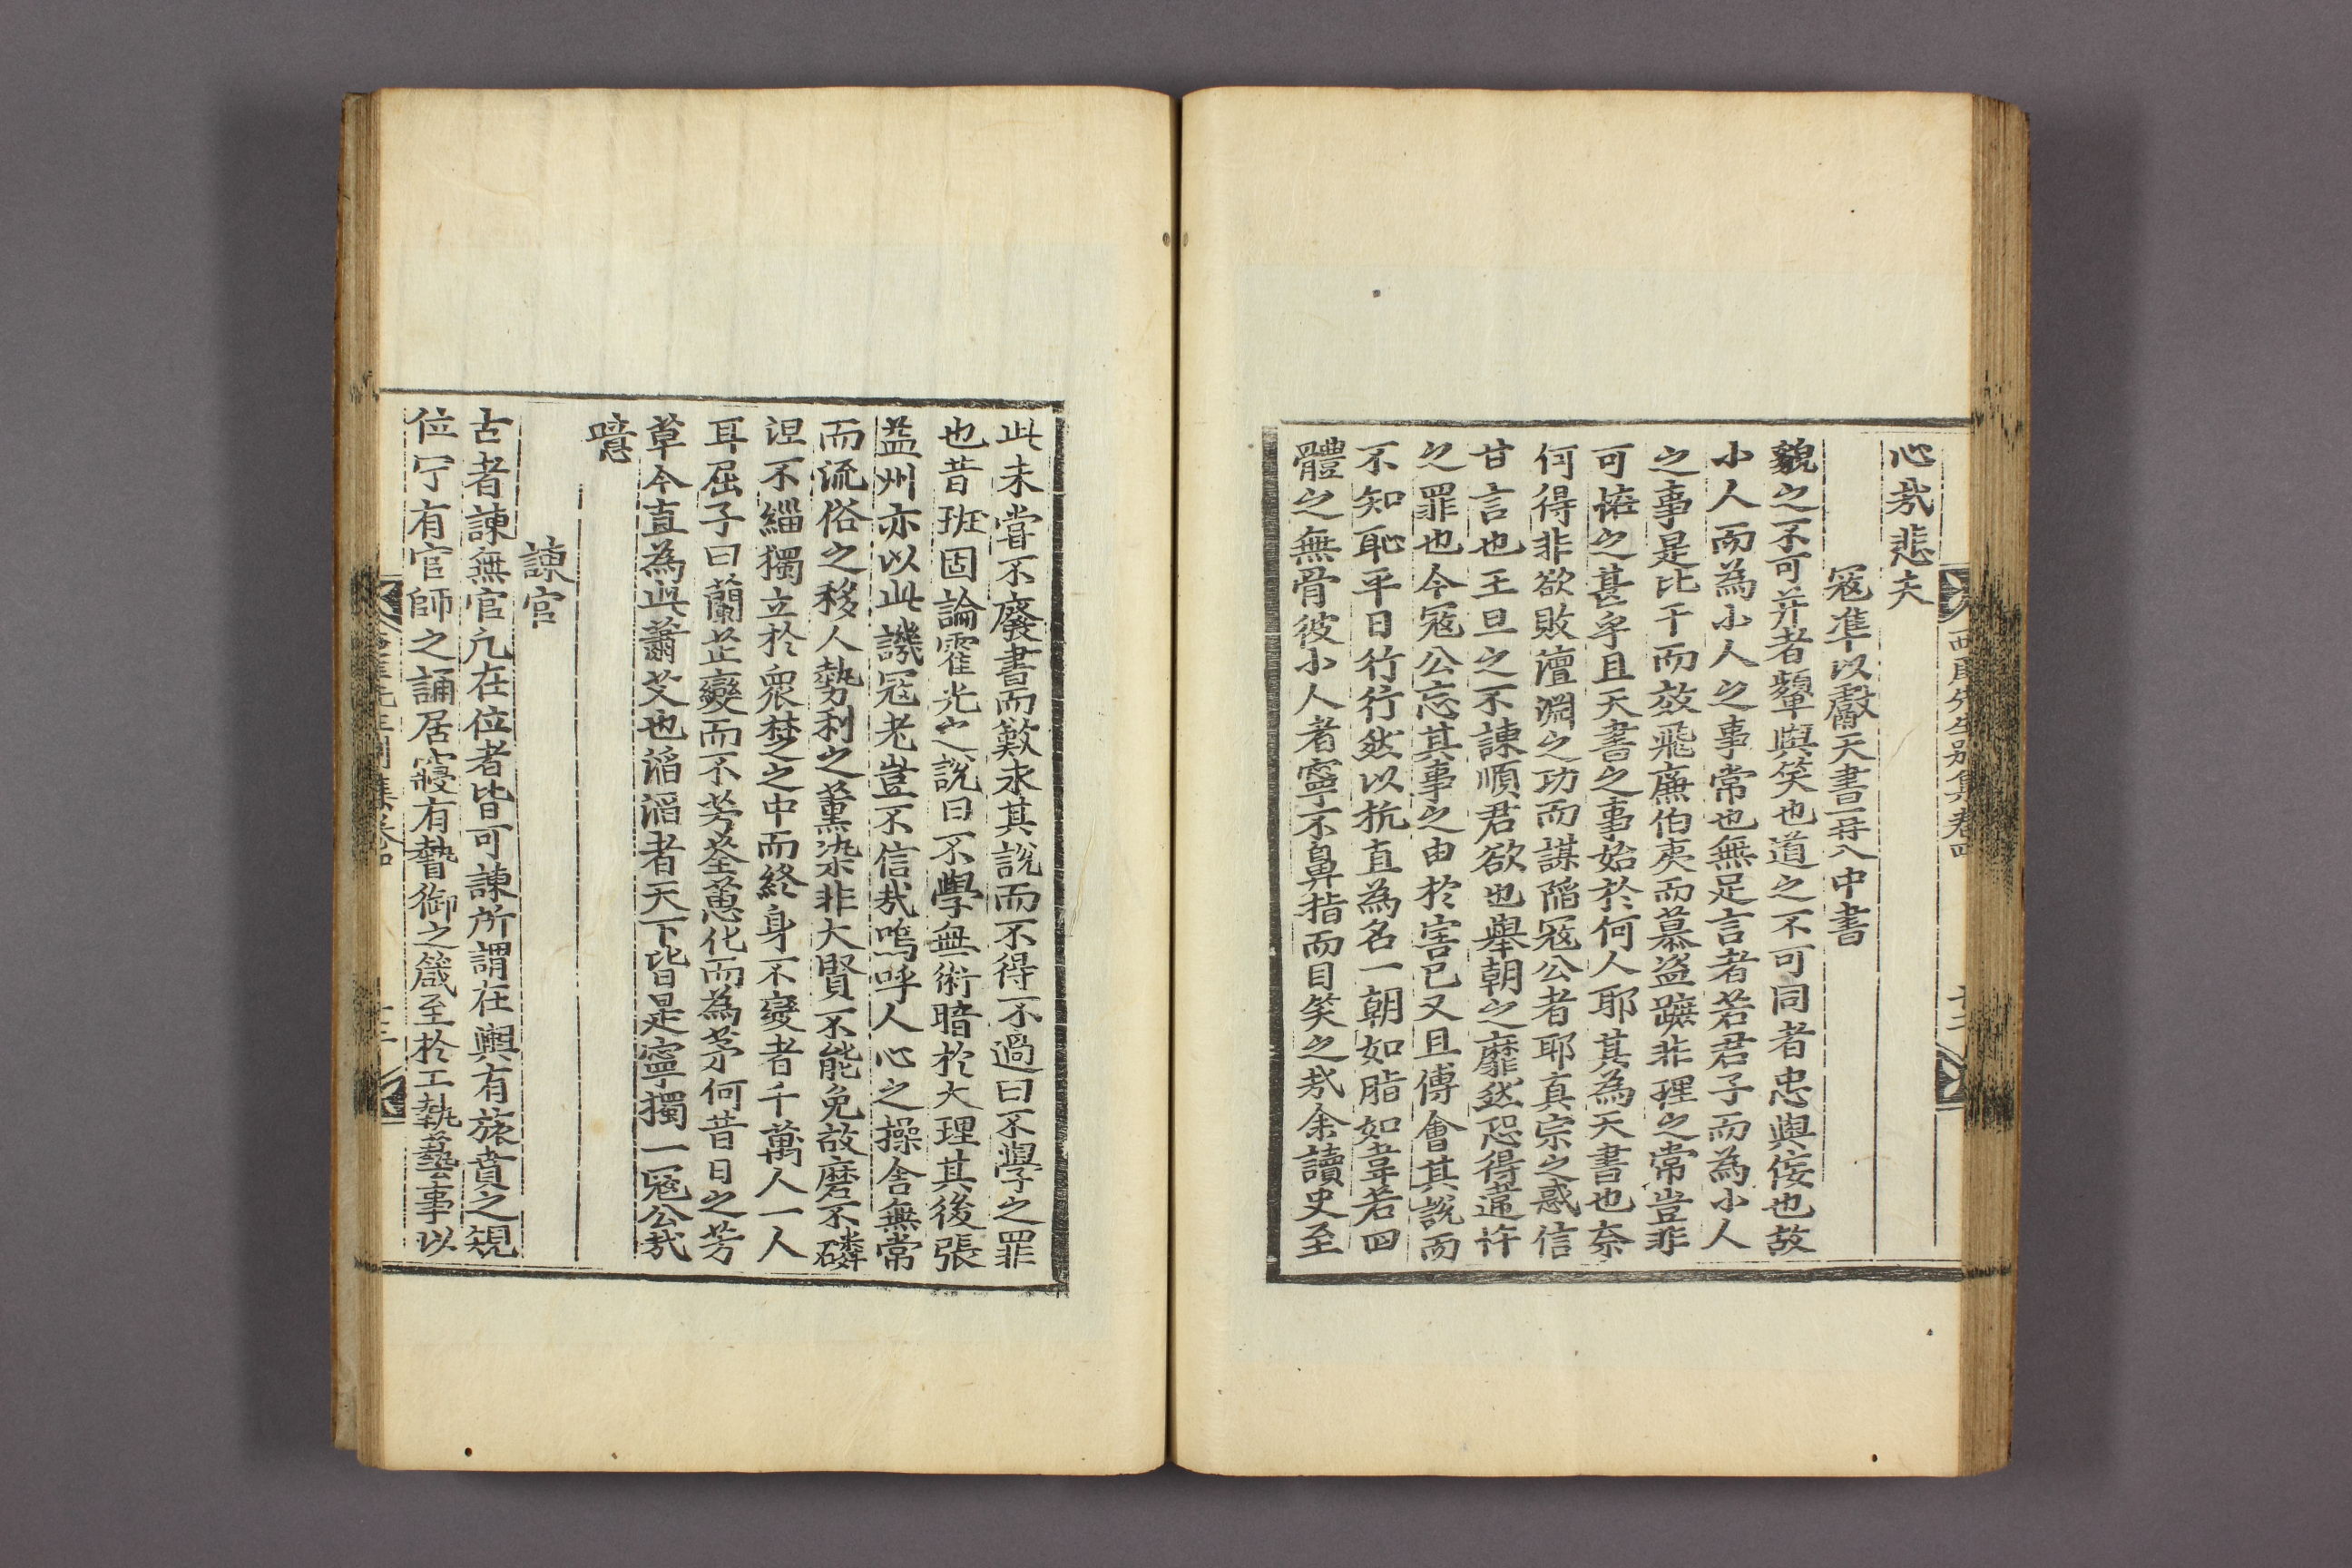 心哉悲夫
寇準以獻天書再入中書
貌之不可并者顰與笑也道之不可同者忠與佞也故
小人而為小人之事常也無足言者若君子而為小人
之事是比干而效飛廉伯夷而慕盜蹠非理之常豈非
可恠之甚乎且天書之事始於何人耶其為天書也奈
何得非欲敗澶淵之功而謀陷寇公者耶真宗之惑信
甘言也王旦之不諫順君欲也舉朝之靡然恐得違忤
之罪也今寇公忘其事之由於害已又且傅會其說而
不知恥平日行行然以抗直為名一朝如脂如韋若四
體之無骨彼小人者寧不鼻指而目笑之哉余讀史至
西厓先生別集卷四
十二
此未嘗不廢書而歎求其說而不得不過曰不學之罪
也昔班固論霍光之說曰不學無術暗於大理其後張
益州亦以此譏寇老豈不信哉嗚呼人心之操舍無常
而流俗之移人勢利之薰染非大賢不能免故磨不磷
涅不緇獨立於衆楚之中而終身不變者千萬人一人
耳屈子曰蘭芷變而不芳荃蕙化而為茅何昔日之芳
草今直為此蕭艾也滔滔者天下皆是寧獨一寇公哉
噫
諫官
古者諫無官凡在位者皆可諫所謂在輿有旅賁之規
位宁有官師之誦居寢有暬御之箴至於工執藝事以